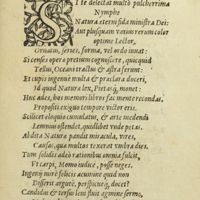 SI te delectat multò pulcherrima
Nymphe
Naturæ eterni fida ministra Dei:
Aut plusquam vatius rerum color
optime Lector,
Ornatus, series, forma, vel ordo iuuat:
Si census opera pretium cognoscere, quicquid
Tellus, Oceani tractus, & astra ferunt:
Et cupis ingenuè multa & præclara doceri,
Id quod Naturæ lex, Pietasq́, monet:
Hoc adeò, hos memori libros fac mente recondas,
Propositi exiguo tempore victor eris.
Scilicet eloquio cumulatus, & arte medendi
Lemnius ostendet, quidlibet vnde petas.
Abdita Naturæ pandit miracula, vires,
Causas, quas multos texerat vmbra dies.
Tam solidis adeò rationibus omnia fulcit,
Vt carpi, Momo iudice, posse neges.
Ingenij mirè felicis acumine quid non
Disserit argutè, perspicueq́, docet?
Candidus & tersus leni fluit agmine sermo,